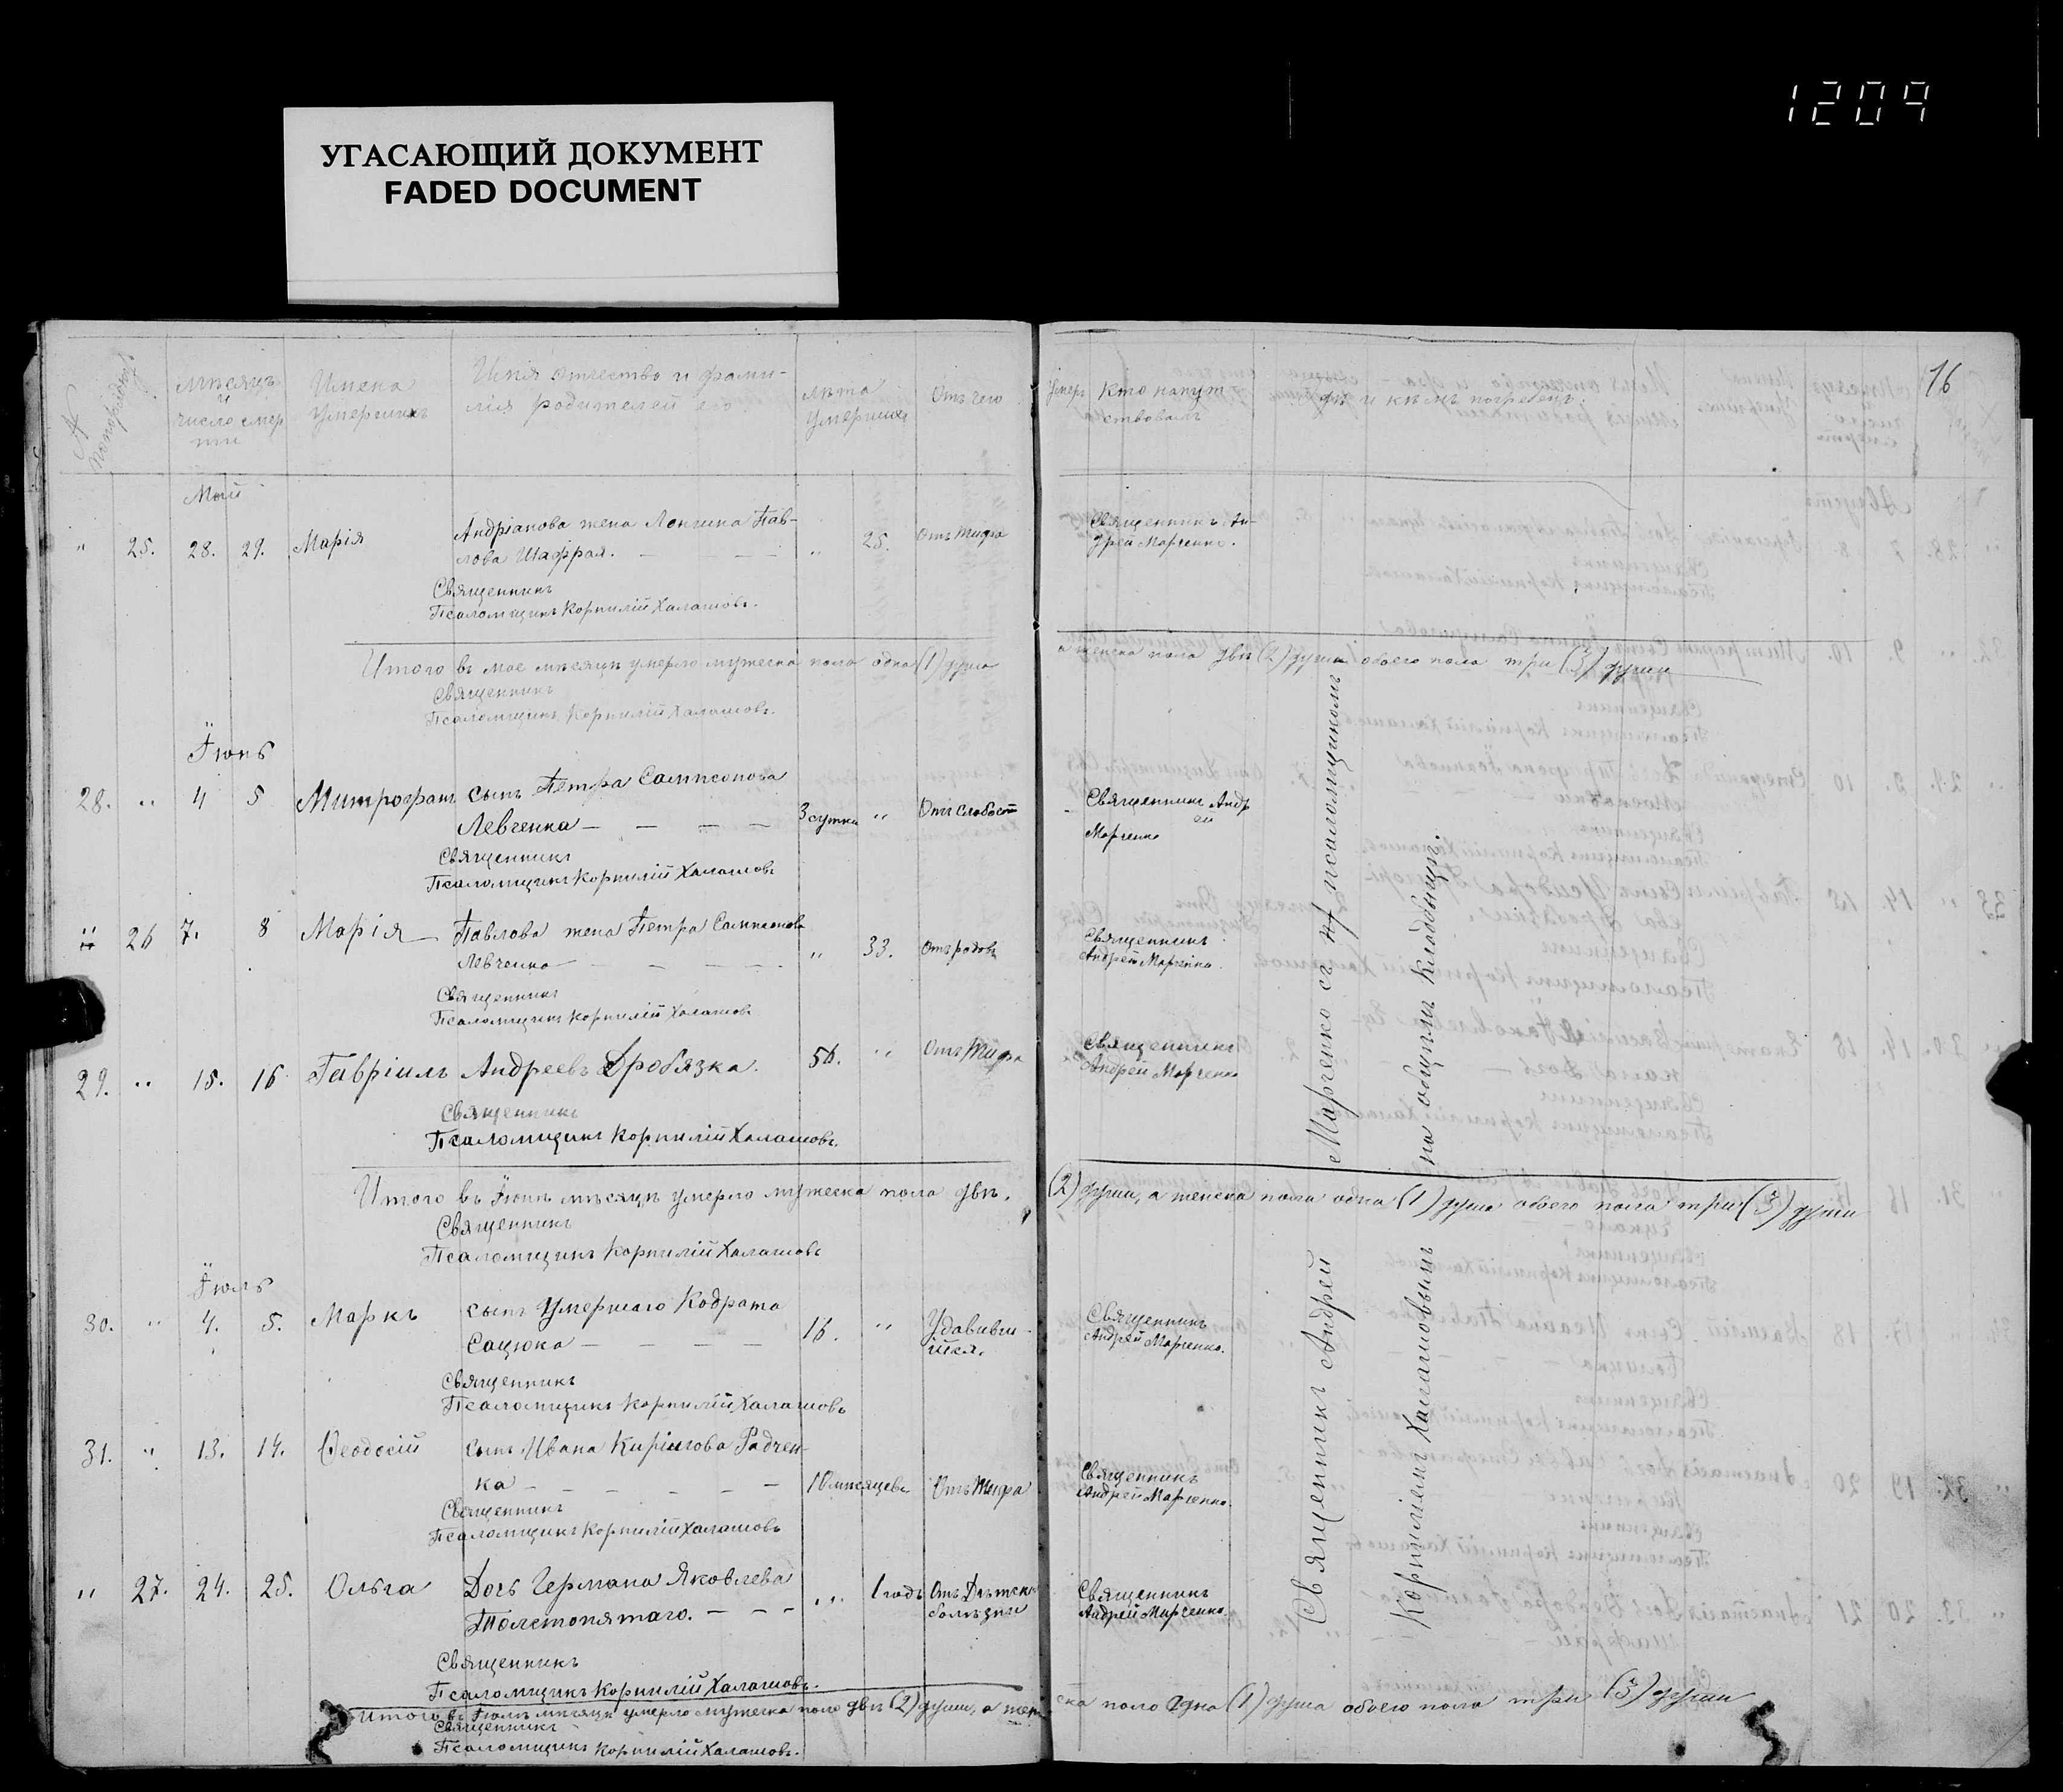 1209
УГАСАЮЩИЙ ДОКУМЕНТ
FADED DOCUMENT
16
№ по порядку
мѣсяцъ
и
число смер
ти
Имена
умершихъ
Имя отчество и фами-
лія родителей его
лѣта
умершихъ
Отъ чего
умеръ
Кто напут
ствовалъ
гдѣ и кѣмъ погребенъ.
Май
" 25. 28. 29. Марія
Андріанова жена Лонгина Пав-
лова Шаффрая. — — —
" 25. Отъ тифа
Священникъ Ан-
дрей Марченко.
Священникъ
Псаломщикъ Корнилій Халашовъ.
Итого въ мае мѣсяцѣ умерло мужеска пола одна (1) душа
а женска пола двѣ (2) души обоего пола три (3) души
Священникъ
Псаломщикъ Корнилій Халашовъ.
Іюнь
28. " 4 5 Митрофанъ
сынъ Петра Сампсонова
Левченка — — — —
3 сутки " Отъ слабост
Священникъ Андр
ей
Марченко
Священникъ
Псаломщикъ Корнилій Халашовъ
" 26 7. 8 Марія
Павлова жена Петра Сампсонова
Левченко — — — —
" 33. Отъ родовъ
Священникъ
Андрей Марченко.
Священникъ
Псаломщикъ Корнилій Халашовъ
29. " 15. 16 Гавріилъ Андреевъ Дробязка. 56. " Отъ Тифа
Священникъ
Андрей Марченко
Священникъ
Псаломщикъ Корнилій Халашовъ.
Итого въ Іюнѣ мѣсяцѣ умерло мужеска пола двѣ.
(2) души, а женска пола одна (1) душа обоего пола три (3) души
Священникъ
Псаломщикъ Корнилій Халашовъ
Іюль
30. " 4. 5. Маркъ
сынъ умершаго Кодрата
Сацюка — — — —
16. " Удавивш-
ійся.
Священникъ
Андрей Марченко.
Священникъ
Псаломщикъ Корнилій Халашовъ
31. " 13. 14. Ѳеодосій
сынъ Ивана Кирилова Радчен-
ка — — — — —
10 мѣсяцевъ Отъ Тифа
Священникъ
Андрей Марченко.
Священникъ
Псаломщикъ Корнилій Халашовъ
" 27. 24. 25. Ольга
Дочь Германа Яковлева
Толстопятаго. — — —
" 1 годъ Отъ Дѣтска
болѣзни
Священникъ
Андрей Марченко.
Священникъ
Псаломщикъ Корнилій Халашовъ.
Итого въ Іюлѣ мѣсяцѣ умерло мужеска пола двѣ (2) души, а жен
ска пола Одна (1) душа обоего пола три (3) души
Священникъ
Псаломщикъ Корнилій Халашовъ.
Священникъ Андрей Марченко съ псаломщикомъ
Корниліемъ Халашовымъ на общемъ кладбищѣ